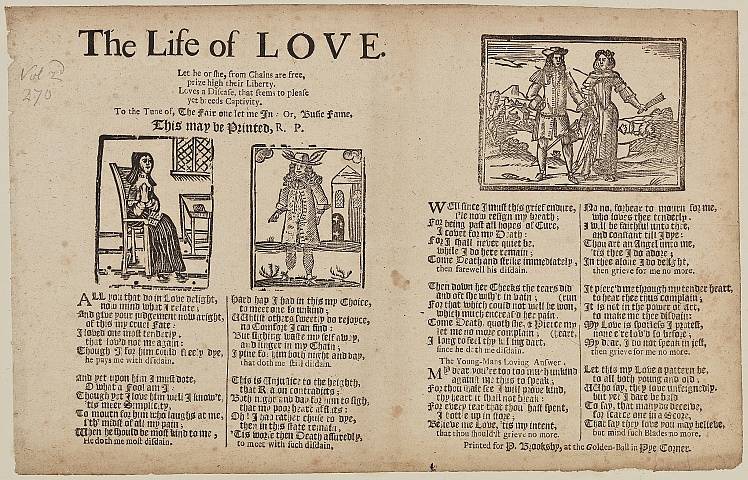 The Life of LOVE.
Vol 2
270
Let he or she, from Chains are free,
prize high their Liberty.
Loves a Disease, that seems to please
yet breeds Captivity.
To the Tune of, The Fair one let me In: Or, Busie Fame.
This may be Printed, R. P.
ALL you that do in Love delight,
now mind what I relate;
And give your judgement now aright,
of this my cruel Fate:
I loved one most tenderly,
that lov'd not me again:
Though I for him could freely dye,
he pays me with disdain.
And yet upon him I must dote,
O what a Fool am I
Though yet I love him well I know't,
'tis meer Simplicity,
To mourn for him who laughs at me,
i'th' midst of all my pain,
When he should be most kind to me,
He doth me most disdain.
Hard hap I had in this my Choice,
to meet one so unkind;
While others sweetly do rejoyce,
no Comfort I can find:
But sighing waste my self away,
and linger in my Chain,
I pine for him both night and day,
that doth me still disdain.
This is Injustice to the heighth,
that on contradicts:
Both night and day for him to sigh,
that my poor heart afflicts:
Oh! I had rather chuse to dye,
then in this state remain,
'Tis worse then Death assuredly,
to meet with such disdain.
WEll since I must this grief endure,
I'le now resign my breath;
For being past all hopes of Cure,
I covet for my Death:
For I shall never quiet be,
while I do here remain;
Come Death and strike immediately,
then farewel his disdain.
Then down her Cheeks the tears did
and oft she wish't in vain; (run
For that which could not well be won,
which much encreas'd her pain.
Come Death, quoth she, & Pierce my
let me no more complain; (heart,
I long to feel thy killing dart,
since he doth me disdain.
The Young-Mans Loving Answer.
MY dear, you're too too much unkind
against me thus to speak;
For thou shalt see I will prove kind,
thy heart it shall not break:
For every tear that thou hast spent,
I bottle up in store;
Believe me Love, 'tis my intent,
that thou shouldst grieve no more.
No no, forbear to mourn for me,
who loves thee tenderly.
I will be faithful unto thee,
and constant till I dye:
Thou art an Angel unto me,
'tis thee I do adore;
In thee alone I do delight,
then grieve for me no more.
It pierc'd me through my tender heart,
to hear thee thus complain;
It is not in the power of Art,
to make me thee disdain:
My Love is spotless I profess,
none e're lov'd so before;
My dear, I do not speak in jest,
then grieve for me no more.
Let this my Love a pattern be,
to all both young and old,
Who say, they love unfeignedly,
but yet I dare be bold
To say, that many do deceive,
for it at one in a Score,
That say they love you may believe,
but mind such Blades no more.
Printed for P. Brooksby, at the Golden-Ball in Pye Corner.